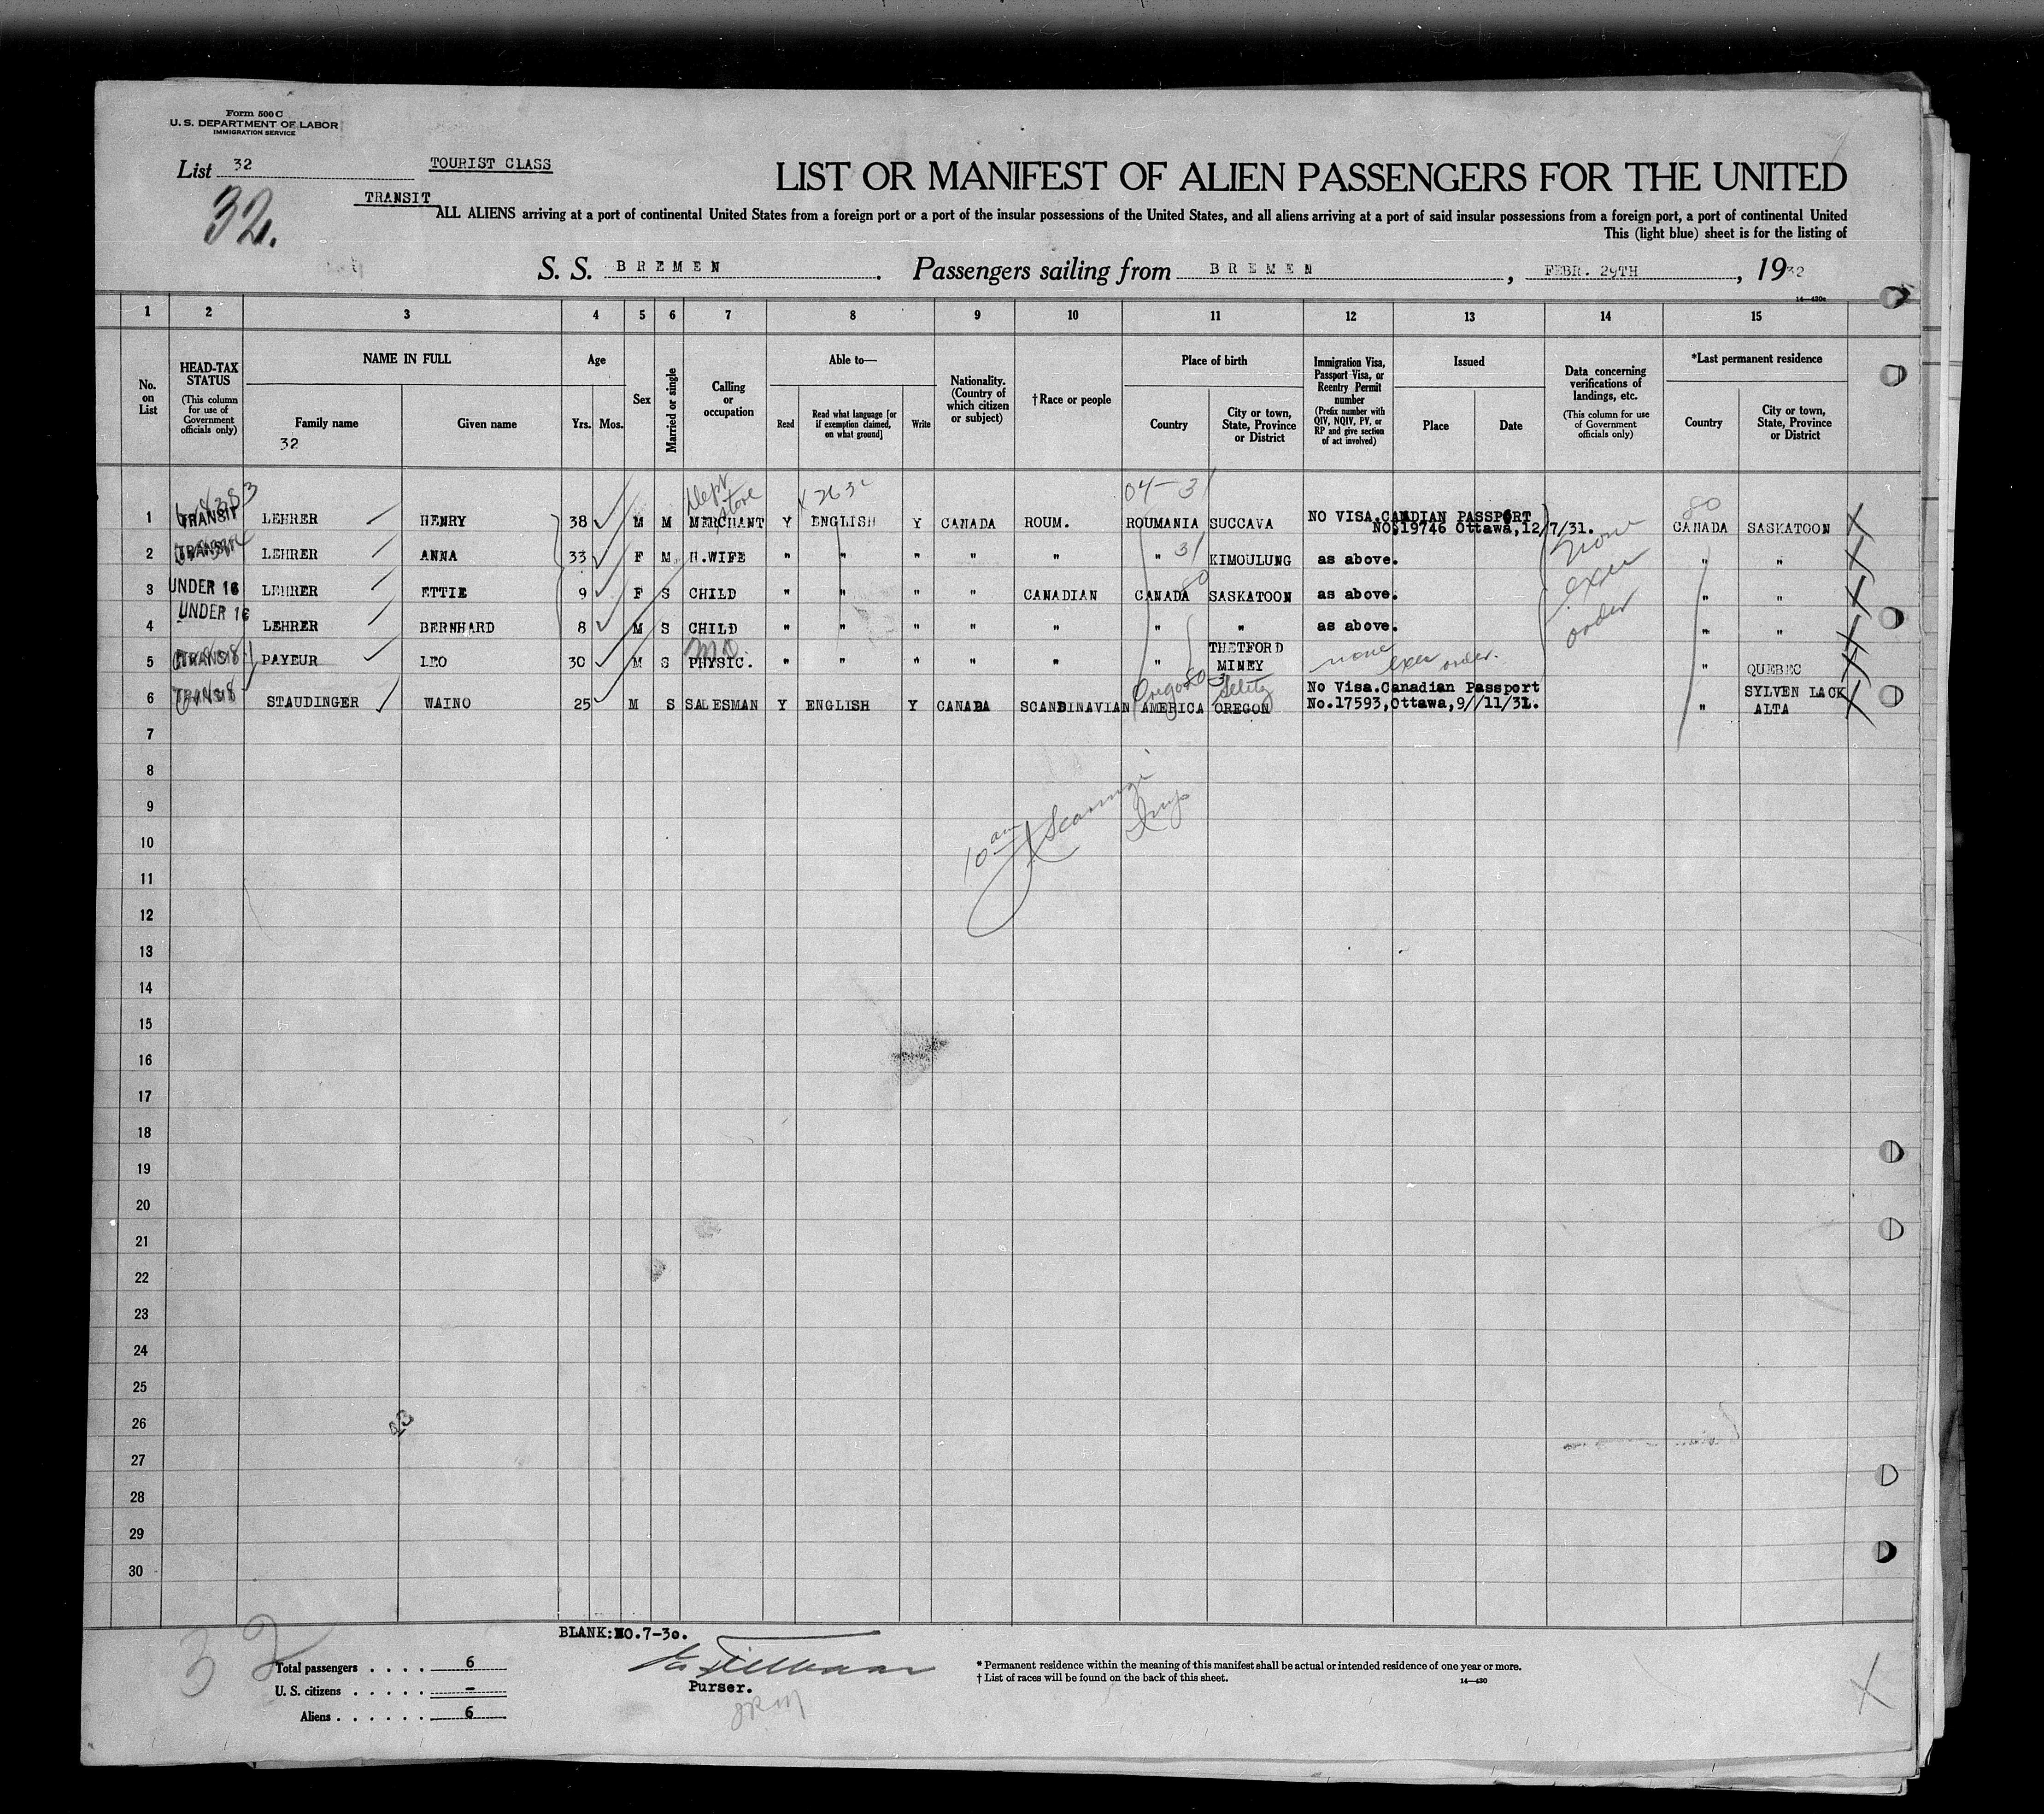 Form 500 C
U. S. DEPARTMENT OF LABOR
IMMIGRATION SERVICE
List 32 TOURIST CLASS
LIST OR MANIFEST OF ALIEN PASSENGERS FOR THE UNITED
32. TRANSIT
ALL ALIENS arriving at a port of continental United States from a foreign port or a port of the insular possessions of the United States, and all aliens arriving at a port of said insular possessions from a foreign port, a port of continental United
This (light blue) sheet is for the listing of
S. S. BREMEN. Passengers sailing from BREMEN, FEBR. 29TH, 1932
14—430a
1 2 3 4 5 6 7 8 9 10 11 12 13 14 15
No. on List
HEAD-TAX STATUS
(This column for use of Government officials only)
NAME IN FULL
Family name
32
Given name
Age
Yrs. Mos.
Sex
Married or single
Calling or occupation
Able to—
Read
Read what language [or if exemption claimed, on what ground]
Write
Nationality. (Country of which citizen or subject)
†Race or people
Place of birth
Country
City or town, State, Province or District
Immigration Visa, Passport Visa, or Reentry Permit number
(Prefix number with QIV, NQIV, PV, or RP and give section of act involved)
Issued
Place
Date
Data concerning verifications of landings, etc.
(This column for use of Government officials only)
*Last permanent residence
Country
City or town, State, Province or District
Dept store
04-31
80
1 TRANSIT LEHRER HENRY 38 M M MERCHANT Y ENGLISH Y CANADA ROUM. ROUMANIA SUCCAVA NO VISA.CANDIAN PASSPORT NO:19746 Ottawa,12/7/31. CANADA SASKATOON
2 TRANSIT LEHRER ANNA 33 F M H.WIFE " " " " " " 31 KIMOULUNG as above. " "
3 UNDER 16 LEHRER ETTIE 9 F S CHILD " " " " CANADIAN CANADA 80 SASKATOON as above. " "
4 UNDER 16 LEHRER BERNHARD 8 M S CHILD " " " " " " " as above. " "
none exec order
5 TRANSIT PAYEUR LEO 30 M S PHYSIC. MD " " " " " " THETFORD MINEY none exec order. " QUEBEC
6 TRANSIT STAUDINGER WAINO 25 M S SALESMAN Y ENGLISH Y CANADA SCANDINAVIAN AMERICA Oregon OREGON No Visa.Canadian Passport No.17593,Ottawa,9//11/31. " SYLVEN LACK ALTA
7
8
9
10
10 am
11
12
13
14
15
16
17
18
19
20
21
22
23
24
25
26
43
27
28
29
30
BLANK:NO.7-30.
32
Total passengers . . . . 6
U. S. citizens . . . . . –
Aliens . . . . . . 6
Purser.
* Permanent residence within the meaning of this manifest shall be actual or intended residence of one year or more.
† List of races will be found on the back of this sheet.
14—430